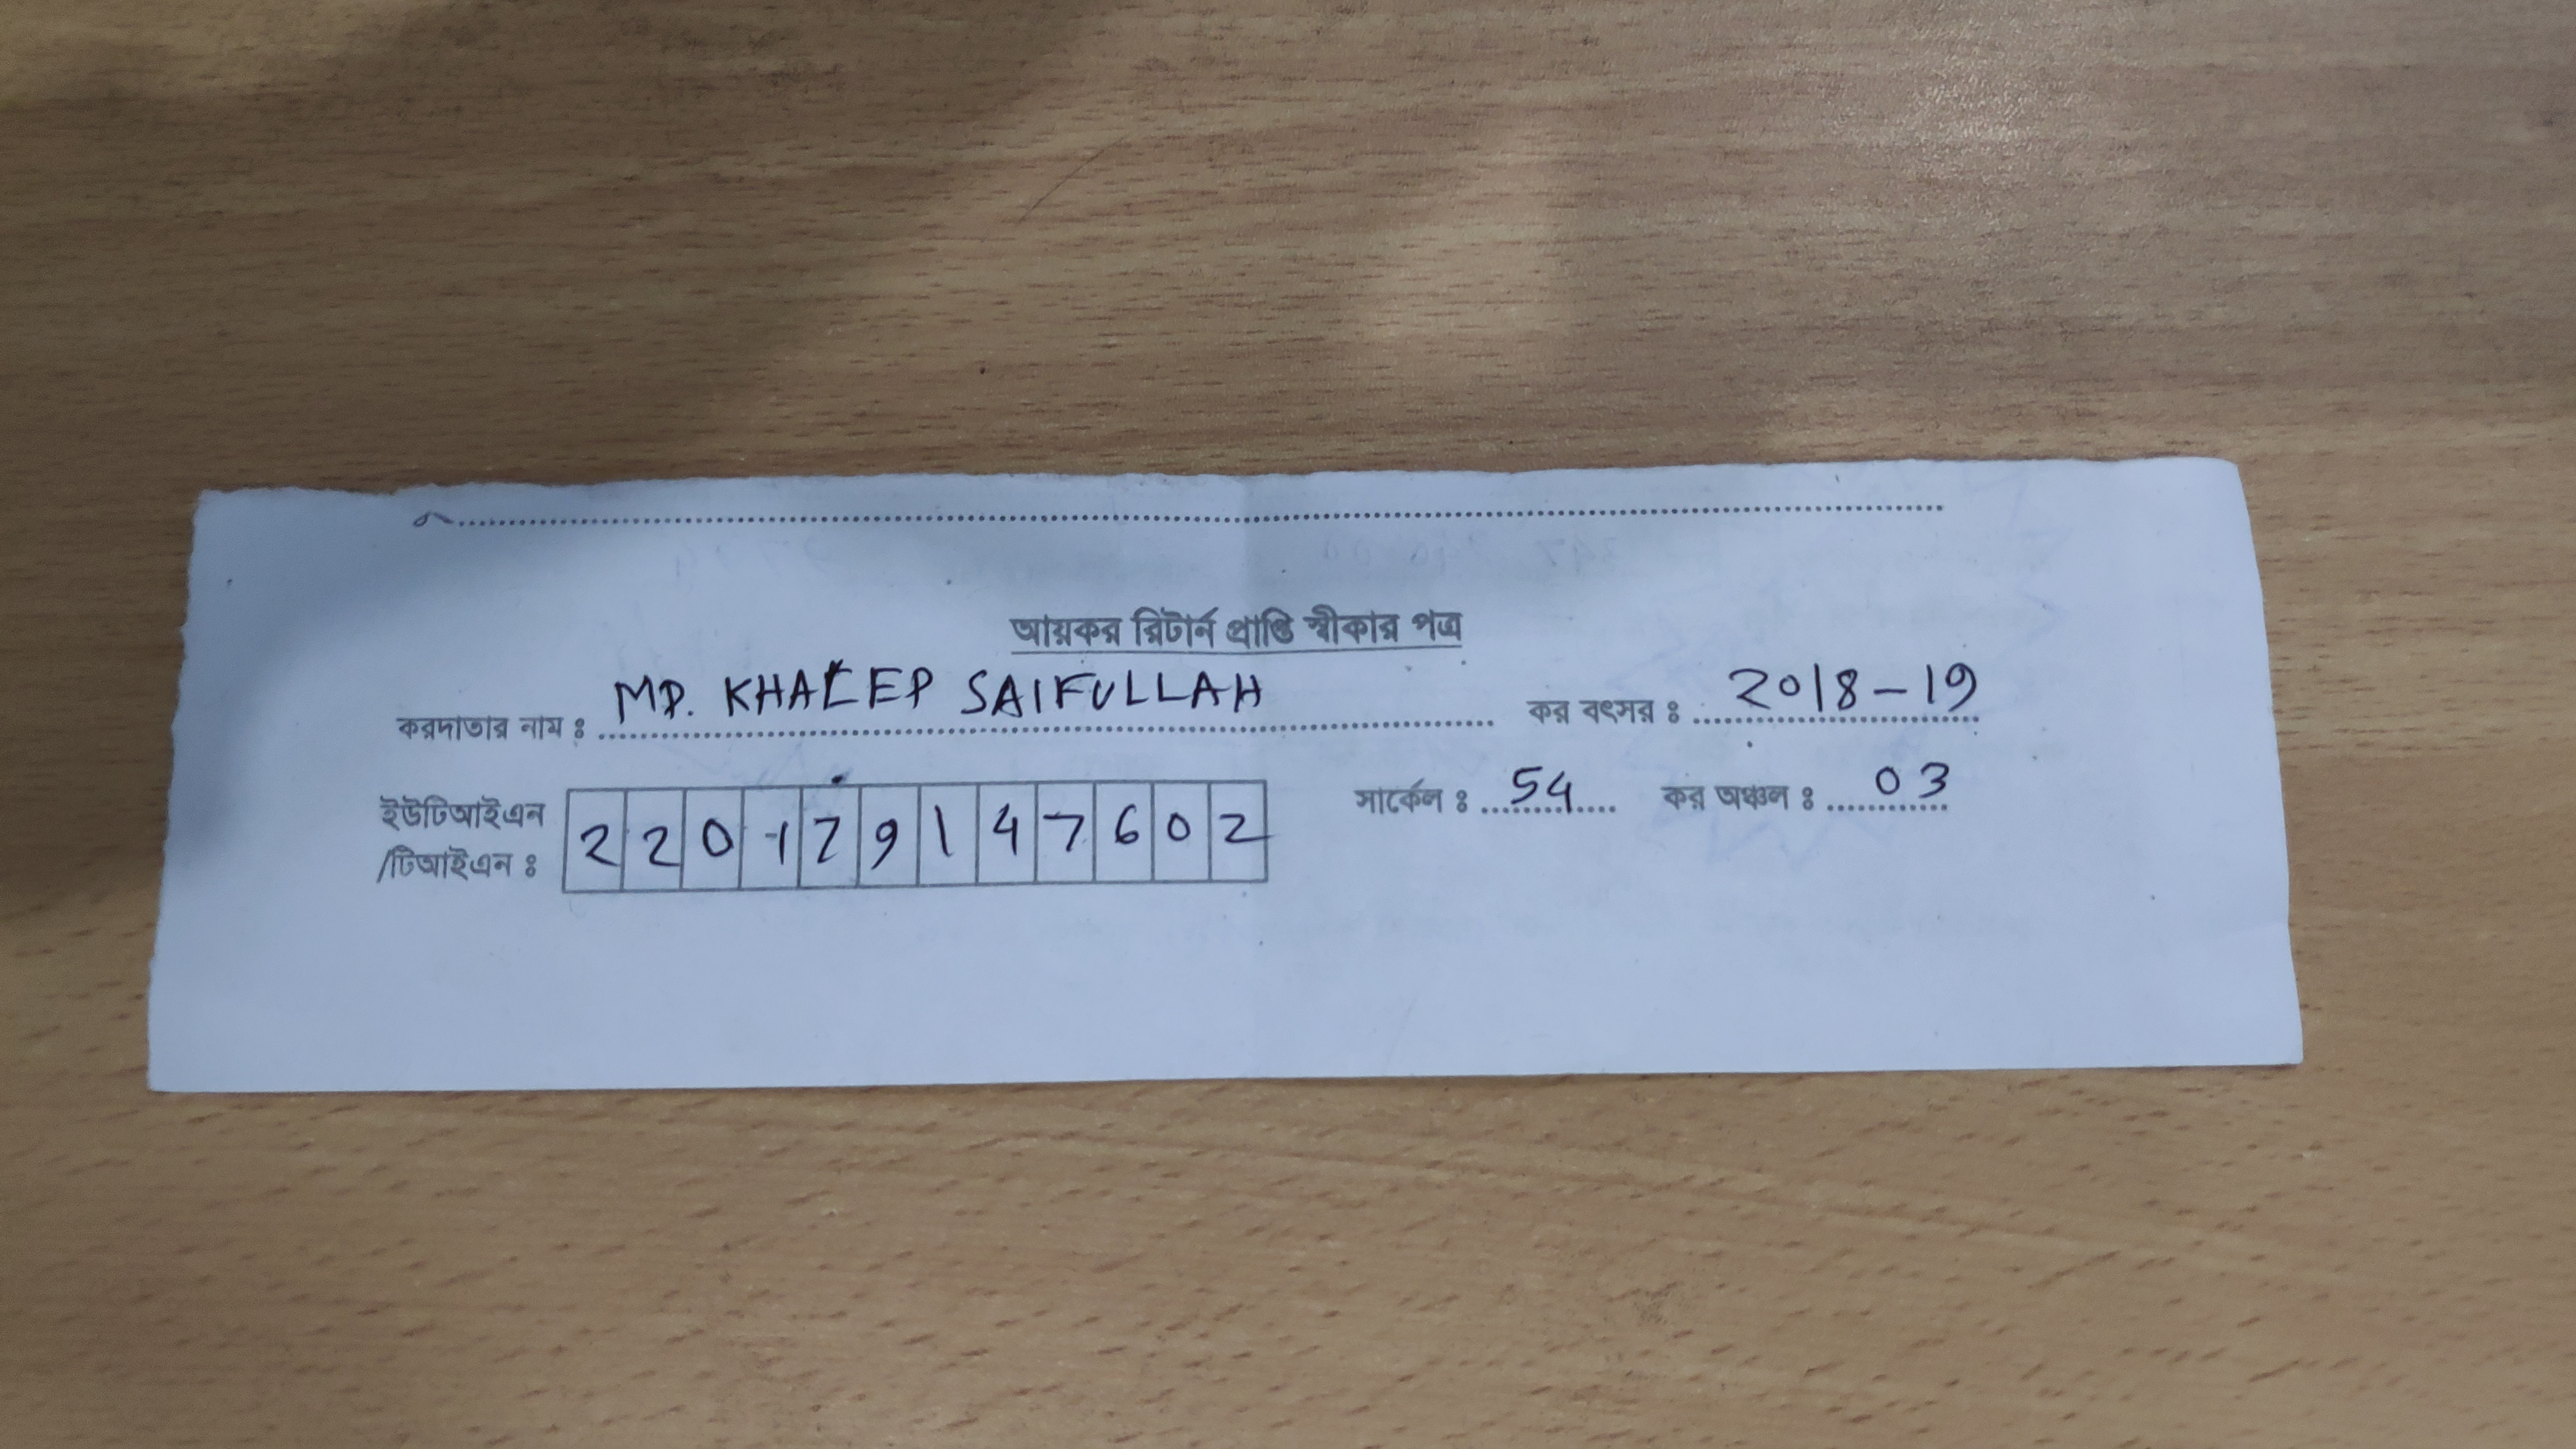 আয়কর রিটার্ন প্রাপ্তি স্বীকার পত্র
করদাতার নাম ঃ MD. KHALED SAIFULLAH কর বৎসর ঃ 2018-19
ইউটিআইএন
/টিআইএন ঃ 220179147602 সার্কেল ঃ 54 কর অঞ্চল ঃ 03